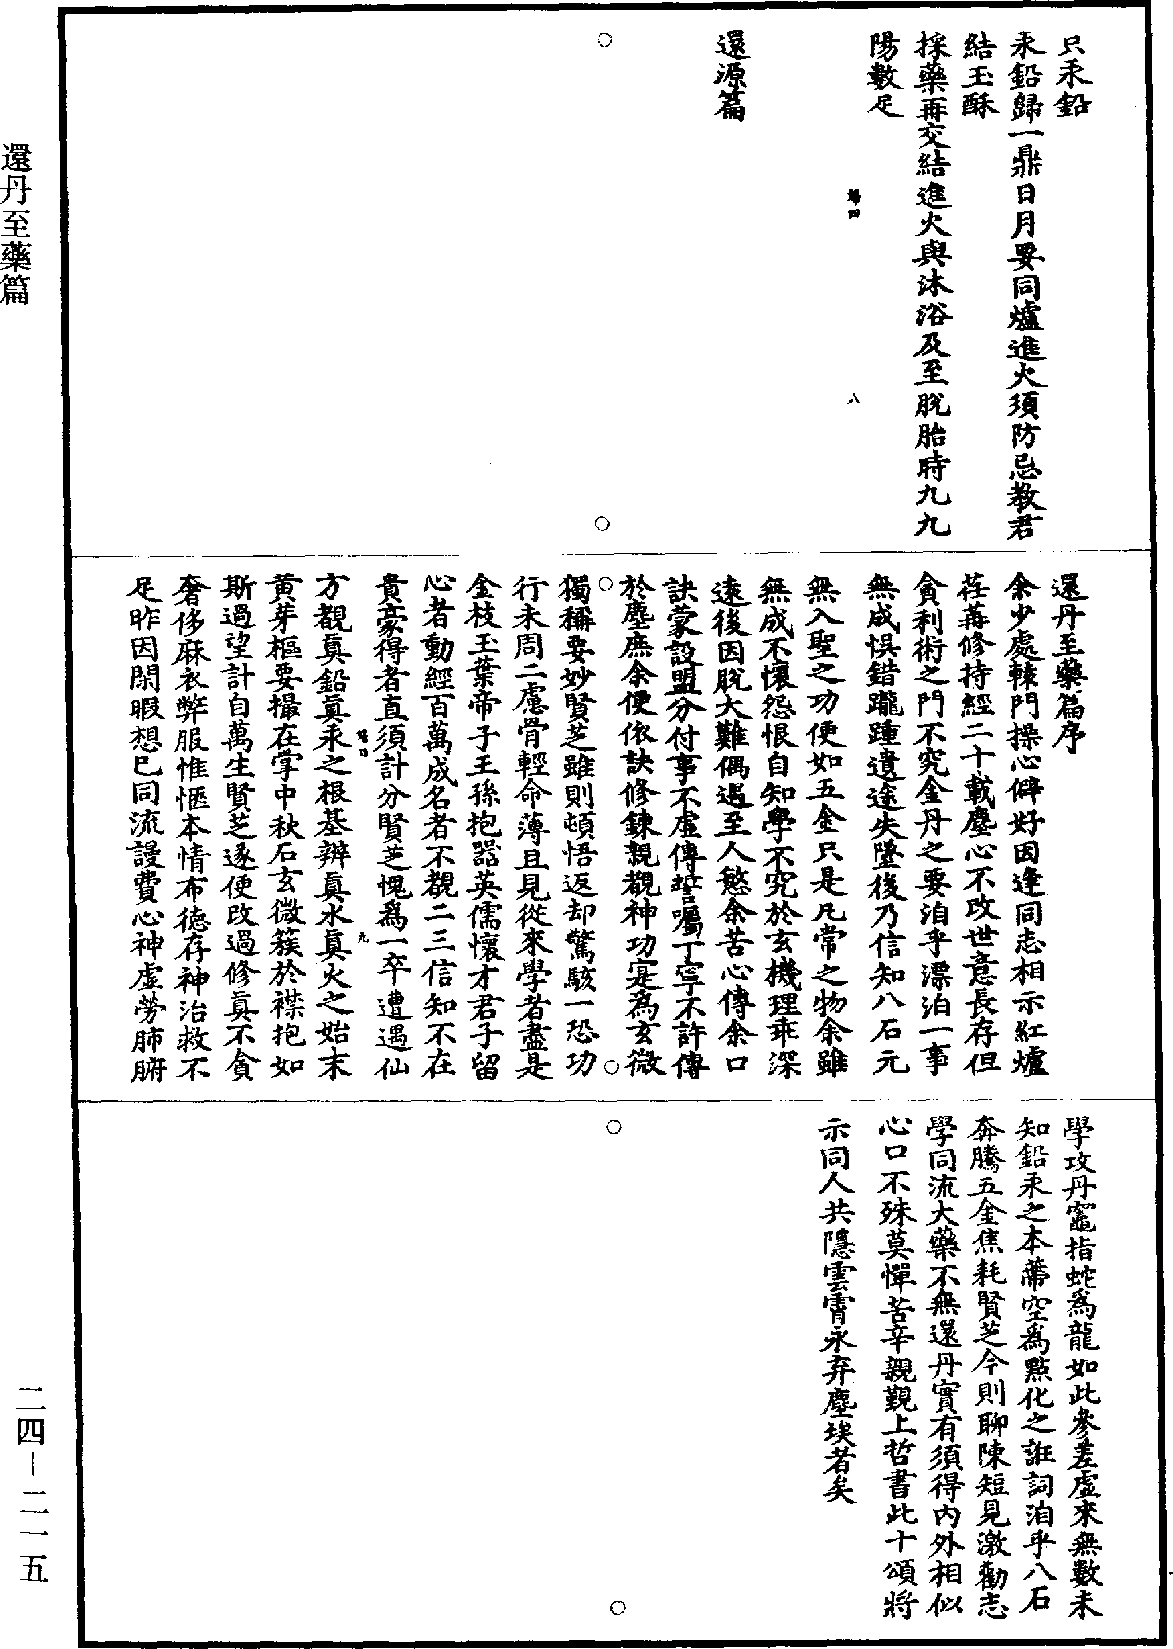 只汞鉛
汞鉛歸一鼎日月要同爐進火須防忌教君
結玉酥
採藥再交結進火與沐浴及至脫胎時九九
陽數足
四
八
還源篇
還丹至藥篇序
余少處轅門操心僻好因逢同志相示紅爐
荏苒修持經二十載塵心不改世意長存但
貪利術之門不究金丹之要洎乎漂泊一事
無成惧錯蹤踵遺途失墜後乃信知八石元
無入聖之功便如五金只是凡常之物余雖
無成不懷怨恨自知學不究於玄機理乖深
遠後因脫大難偶遇至人慜余苦心傳余口
訣蒙設盟分付事不虛傳誓囑丁寧不許傳
於塵庶余便依訣修鍊親覩神功寔爲玄微
獨稱要妙賢芝雖則頓悟返却驚駭一恐功
行未周二慮骨輕命薄且見從來學者盡是
金枝玉葉帝子王孫抱器英儒懷才君子留
心者動經百萬成名者不覩二三信知不在
貴豪得者直須計分賢芝愧爲一卒遭遇仙
四
九
方覩真鉛真汞之根基辨真水真火之始末
黃芽樞要撮在掌中秋石玄微簇於襟抱如
斯過望計自萬生賢芝遂便改過修真不貪
奢侈麻衣弊服惟愜本情布德存神治救不
足昨因閑暇想已同流謾費心神虛勞肺腑
學攻丹竈指蛇爲龍如此參差虛來無數未
知鉛汞之本蔕空爲點化之誑詞洎乎八石
奔騰五金焦耗賢芝今則聊陳短見激勸志
學同流大藥不無還丹實有須得內外相似
心口不殊莫憚苦辛親覲上哲書此十頌將
示同人共隱雲霄永弃塵埃者矣
還丹至藥篇
二四－二一五